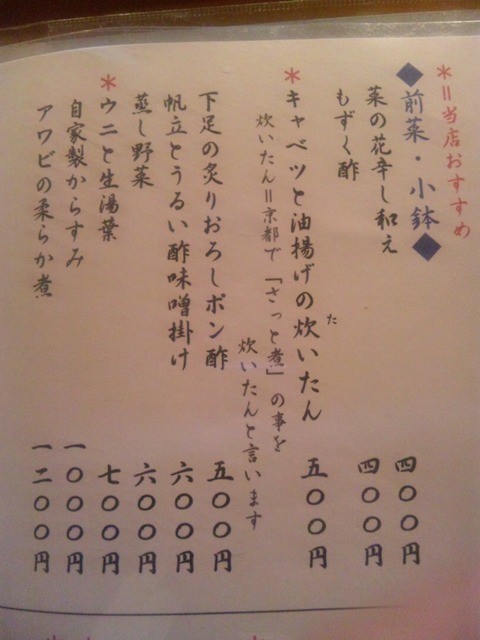 *＝当店おすすめ
◆前菜・小鉢◆
菜の花辛し和え 四〇〇円
もずく酢 四〇〇円
*キャベツと油揚げの炊いたん 五〇〇円
た
炊いたん＝京都で「さっと煮」の事を
炊いたんと言います
下足の炙りおろしポン酢 五〇〇円
帆立とうるい酢味噌掛け 六〇〇円
蒸し野菜 六〇〇円
*ウニと生湯葉 七〇〇円
自家製からすみ 一〇〇〇円
アワビの柔らか煮 一二〇〇円